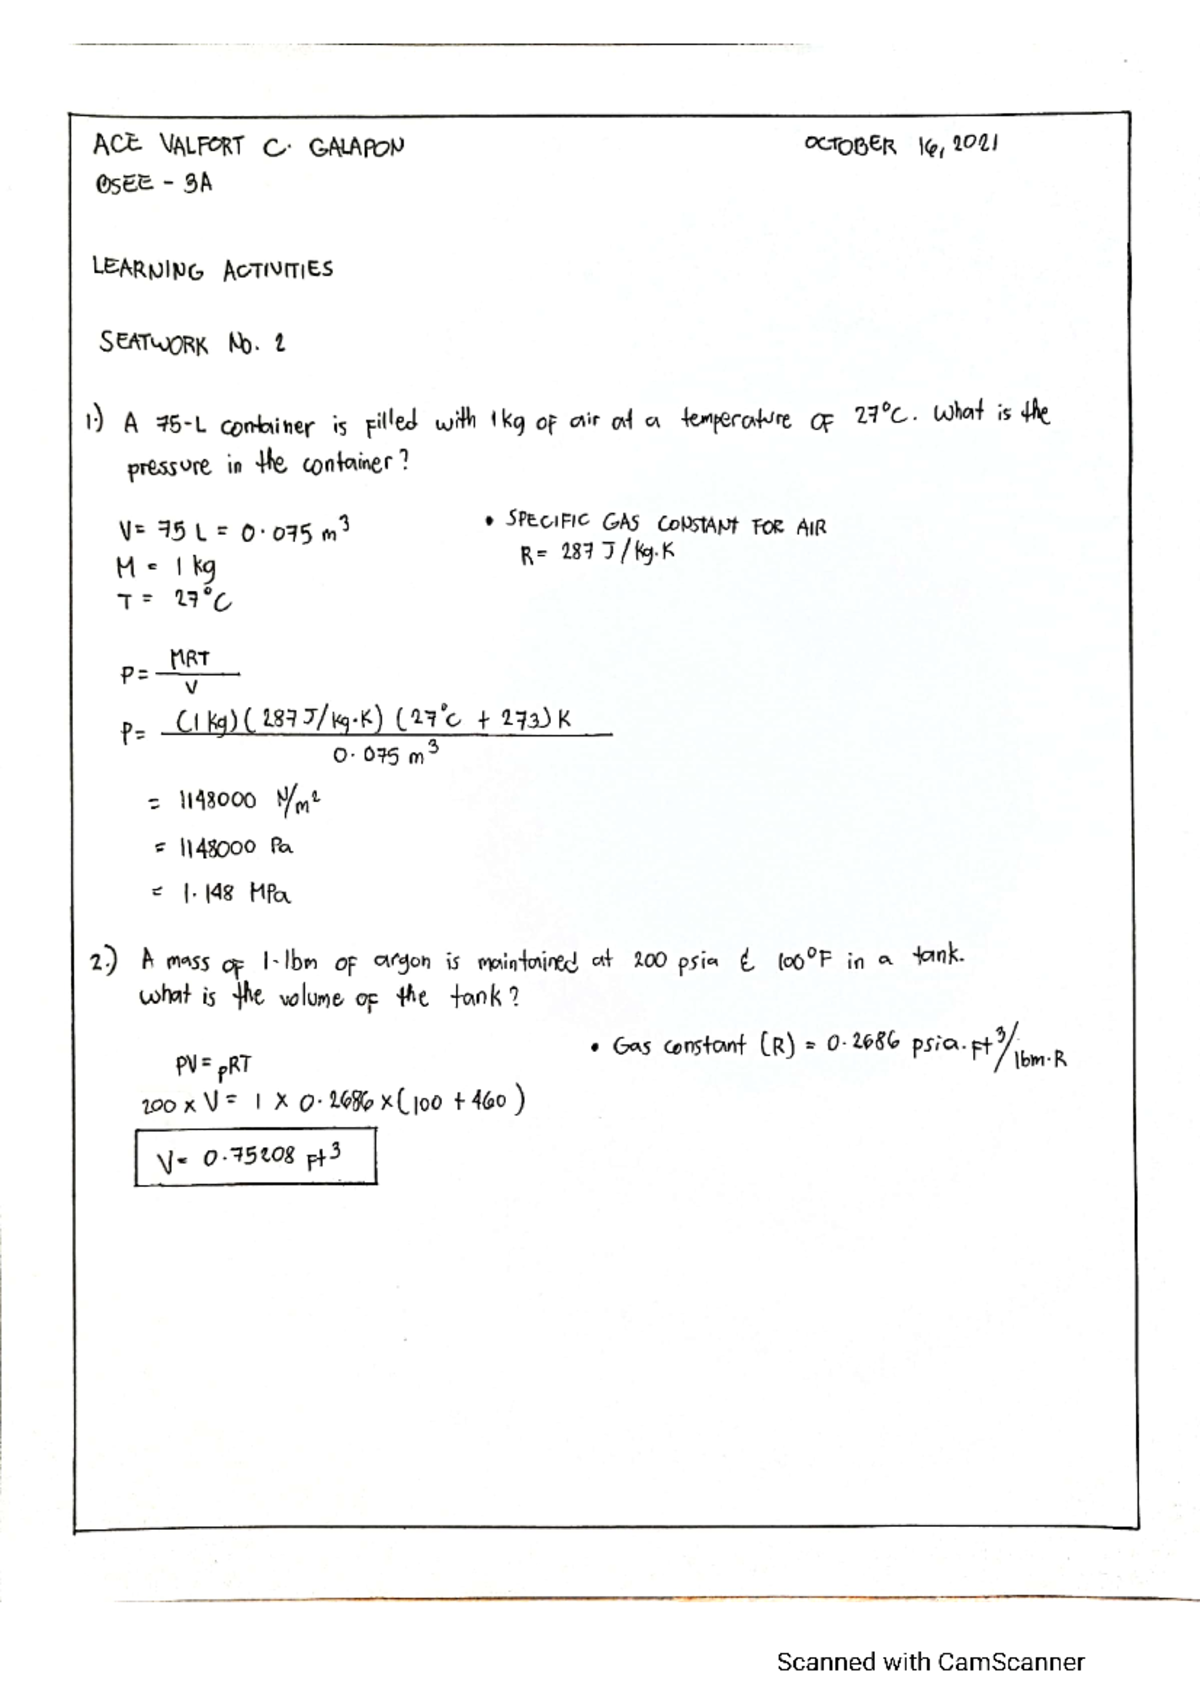 ACE VALFORT C. GALAPON OCTOBER 16, 2021
BSEE - 3A
LEARNING ACTIVITIES
SEATWORK No. 2
1.) A 75-L container is filled with 1 kg of air at a temperature of 27°C. What is the
pressure in the container?
V = 75 L = 0.075 m³ • SPECIFIC GAS CONSTANT FOR AIR
M = 1 kg R = 287 J/kg.K
T = 27°C
P = MRT / V
P = (1 kg)(287 J/kg.K)(27°C + 273)K / 0.075 m³
= 1148000 N/m²
= 1148000 Pa
= 1.148 MPa
2.) A mass of 1-lbm of argon is maintained at 200 psia & 100°F in a tank.
What is the volume of the tank?
• Gas constant (R) = 0.2686 psia.ft³/lbm.R
PV = pRT
200 x V = 1 x 0.2686 x (100 + 460)
V = 0.75208 ft³
Scanned with CamScanner